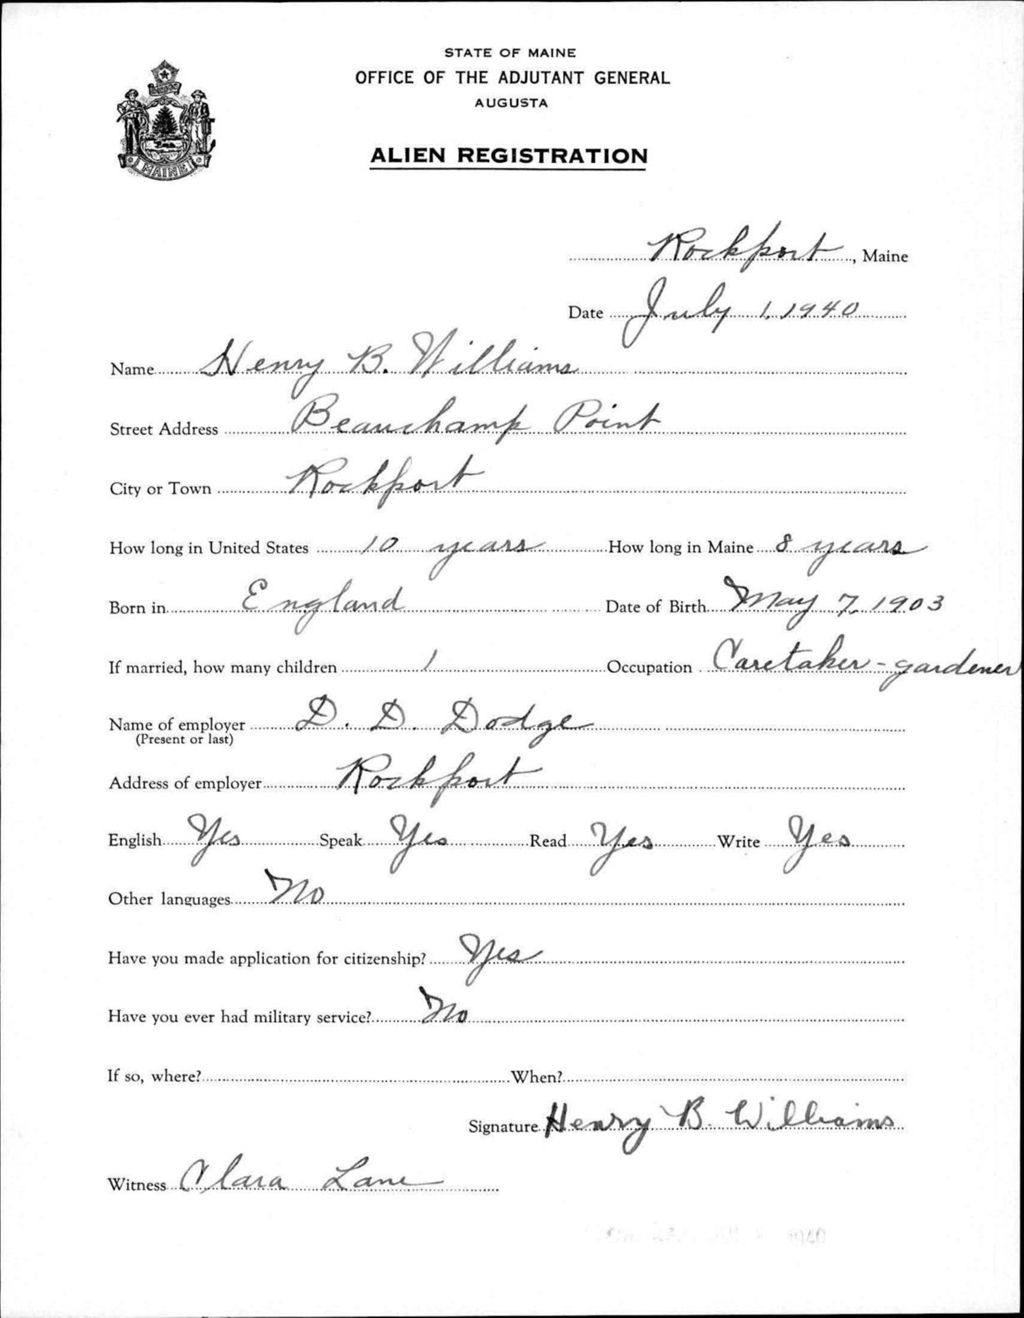 STATE OF MAINE
OFFICE OF THE ADJUTANT GENERAL
AUGUSTA
ALIEN REGISTRATION
MAINE
Rockport, Maine
Date July 1, 1940
Name Henry B. Williams
Street Address Beauchamp Point
City or Town Rockport
How long in United States 10 years How long in Maine 8 years
Born in England Date of Birth May 7, 1903
If married, how many children 1 Occupation Caretaker - gardener
Name of employer D. D. Dodge
(Present or last)
Address of employer Rockport
English Yes Speak Yes Read Yes Write Yes
Other languages No
Have you made application for citizenship? Yes
Have you ever had military service? No
If so, where? When?
Signature Henry B. Williams
Witness Clara Lane